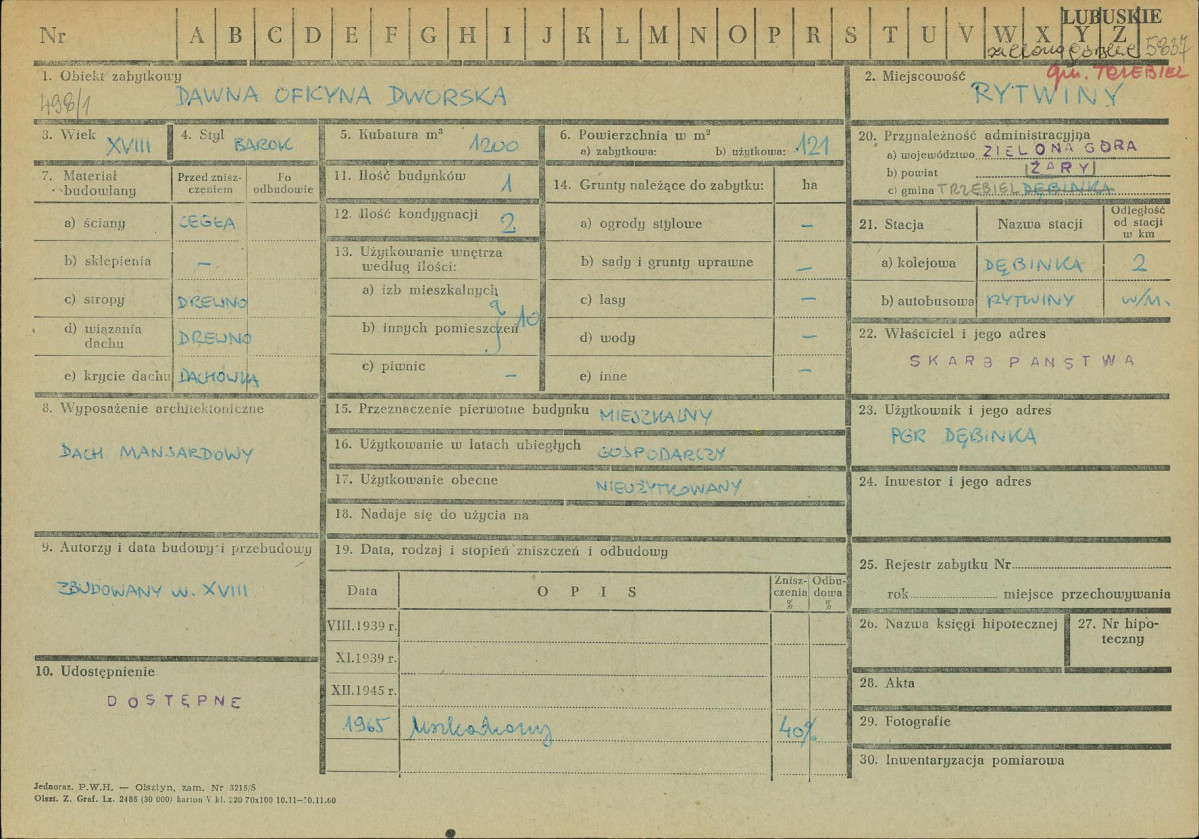 LUBUSKIE
Nr A B C D E F G H I J K L M N O P R S T U V W X Y Z
zielonogórskie 5837
gm. TRZEBIEL
1. Obiekt zabytkowy
498/1
DAWNA OFICYNA DWORSKA
2. Miejscowość
RYTWINY
3. Wiek XVIII
4. Styl BAROK
5. Kubatura m³ 1200
6. Powierzchnia w m²
a) zabytkowa: b) użytkowa: 121
20. Przynależność administracyjna
a) województwo ZIELONA GÓRA
b) powiat ŻARY
c) gmina TRZEBIEL DĘBINKA
7. Materiał budowlany
Przed zniszczeniem
Po odbudowie
a) ściany CEGŁA
b) sklepienia –
c) stropy DREWNO
d) wiązania dachu DREWNO
e) krycie dachu DACHÓWKA
11. Ilość budynków 1
12. Ilość kondygnacji 2
13. Użytkowanie wnętrza według ilości:
a) izb mieszkalnych
b) innych pomieszczeń 10
c) piwnic –
14. Grunty należące do zabytku: ha
a) ogrody stylowe –
b) sady i grunty uprawne –
c) lasy –
d) wody –
e) inne –
21. Stacja Nazwa stacji Odległość od stacji w km
a) kolejowa DĘBINKA 2
b) autobusowa RYTWINY w/m.
22. Właściciel i jego adres
SKARB PAŃSTWA
8. Wyposażenie architektoniczne
DACH MANSARDOWY
15. Przeznaczenie pierwotne budynku MIESZKALNY
16. Użytkowanie w latach ubiegłych GOSPODARCZY
17. Użytkowanie obecne NIEUŻYTKOWANY
18. Nadaje się do użycia na
23. Użytkownik i jego adres
PGR DĘBINKA
24. Inwestor i jego adres
9. Autorzy i data budowy i przebudowy
ZBUDOWANY w. XVIII
19. Data, rodzaj i stopień zniszczeń i odbudowy
Data OPIS Zniszczenia % Odbudowa %
VIII.1939 r.
XI.1939 r.
XII.1945 r.
1965 Uszkodzony 40%
25. Rejestr zabytku Nr
rok miejsce przechowywania
26. Nazwa księgi hipotecznej
27. Nr hipoteczny
28. Akta
29. Fotografie
30. Inwentaryzacja pomiarowa
10. Udostępnienie
DOSTĘPNE
Jednoraz. P.W.H. — Olsztyn, zam. Nr 3215/S
Olszt. Z. Graf. Lz. 2485 (30 000) karton V kl. 220 70x100 10.11—30.11.60